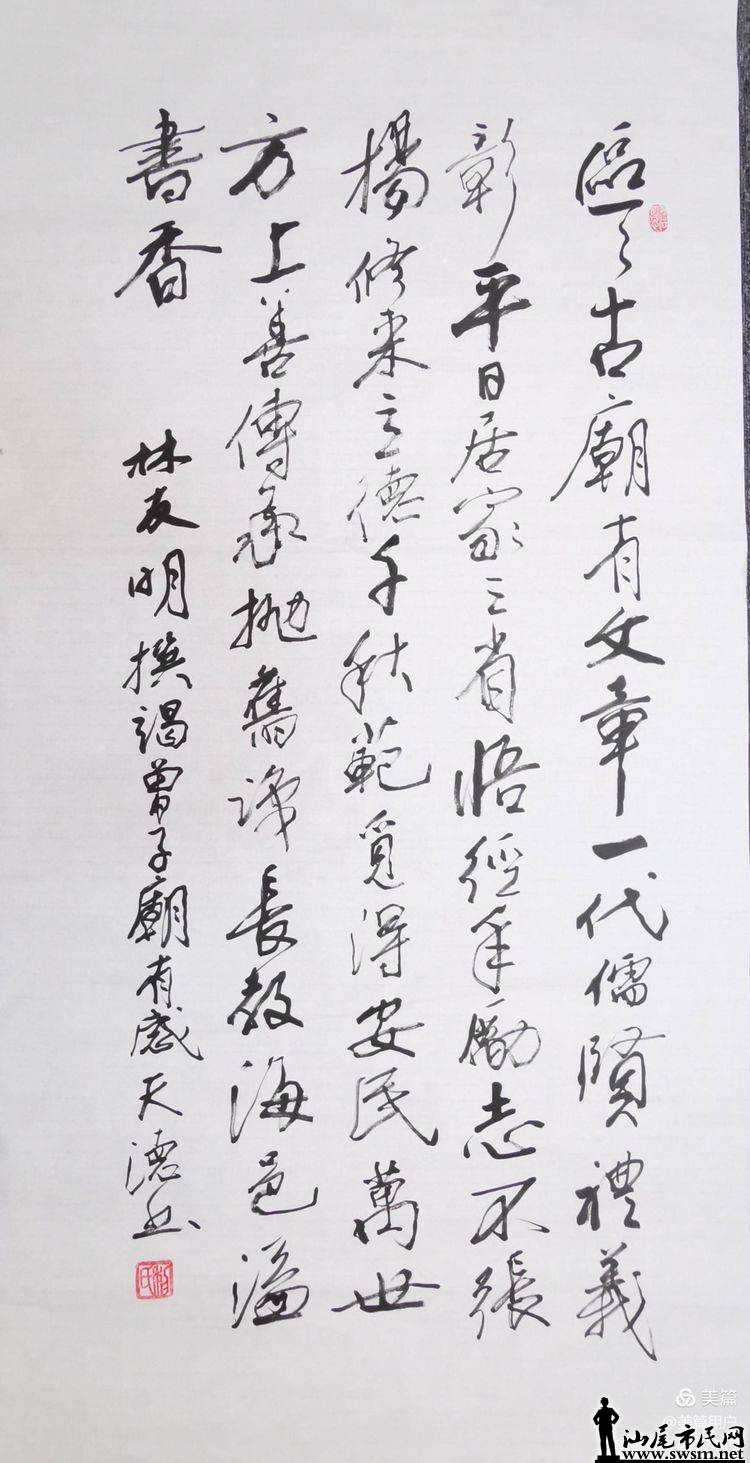 區々古廟有文章一代儒賢禮義
彰平日居家三省悟經年勵志不張
揚修来立德千秋範覓得安民萬世
方上善傳承抛舊識長教海邑溢
書香
林友明撰謁曾子廟有感天德书
美篇
@美篇用户
汕尾市民网
www.swsm.net